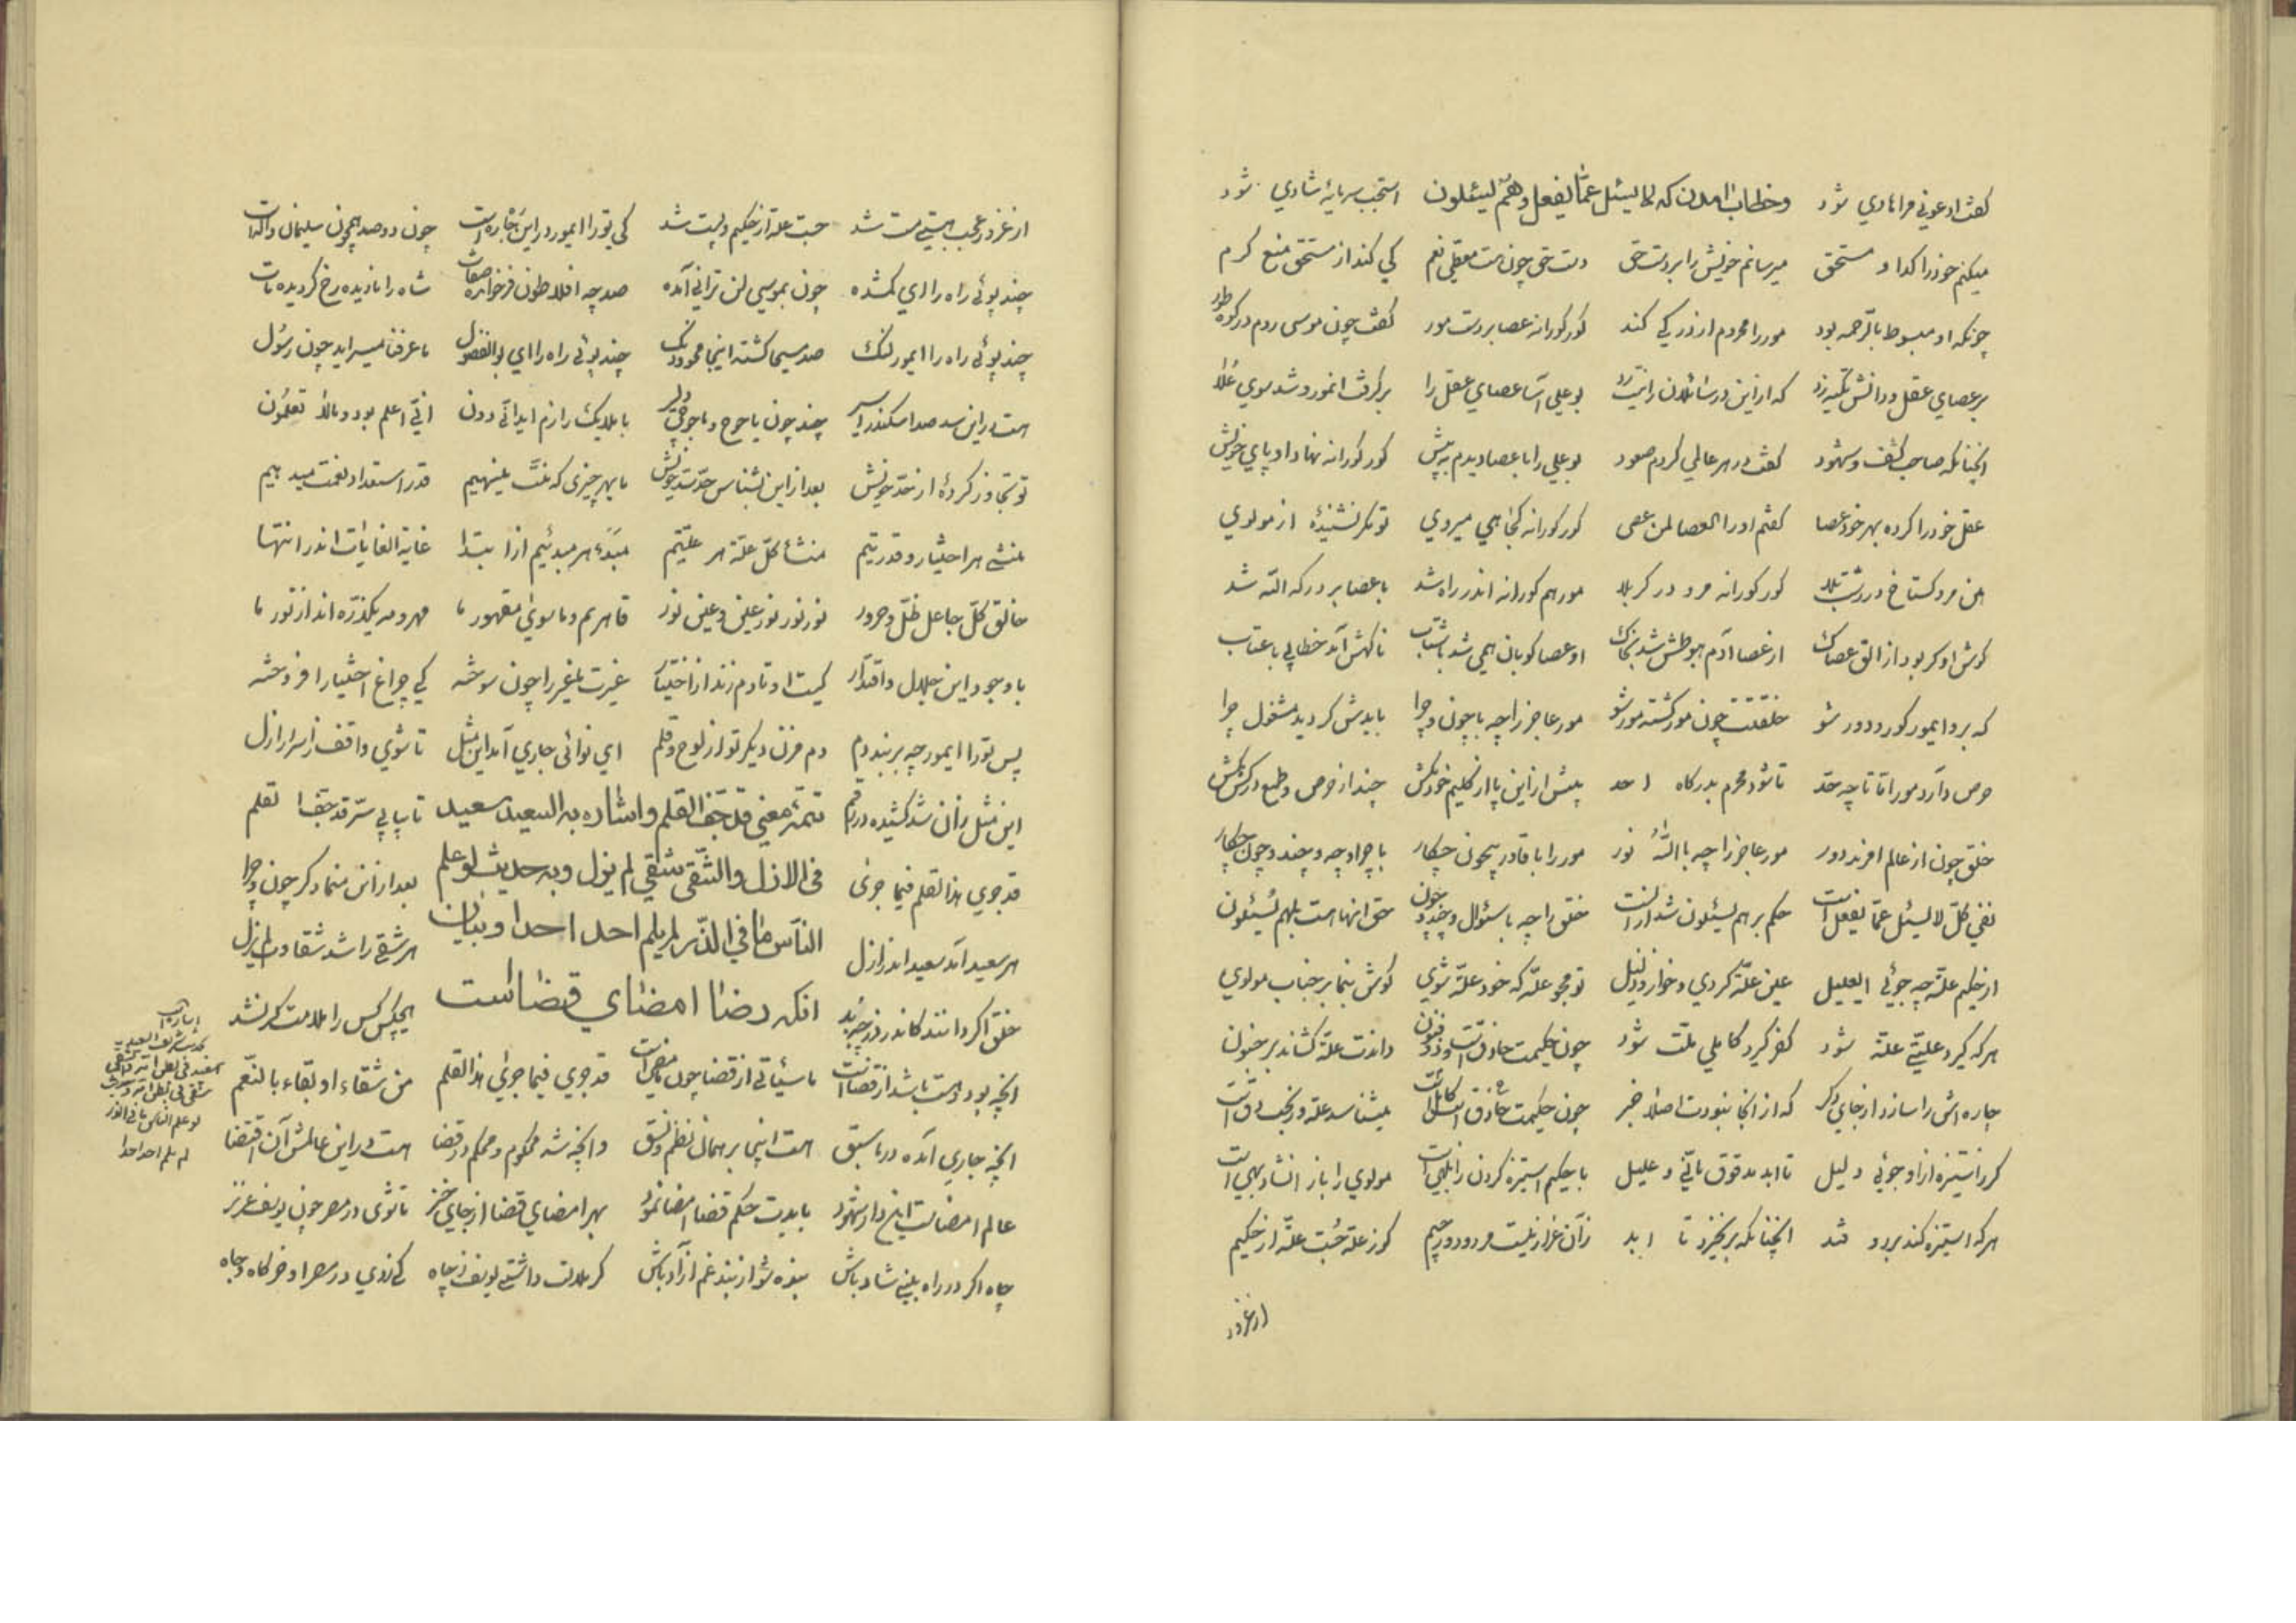 گفت ادعونی مرا هادی شود وخطاب امدن که لا یسئل عمّا یفعل وهم یسئلون استجب سرمایهٔ شادی شود
میکنم خود را کدا و مستحق میرسانم خویش را بر دست حق دست حق چون هست معطی نعم کی کند از مستحق منع کرم
چونکه او مبسوط بالرحمه بود مور را محروم از در کی کند کور کورانه عصا بر دست مور گفت چون موسی روم در کوه طور
بر عصای عقل و دانش تکیه زد که از این در سائلان را نیست رد بو علی آسا عصای عقل را بر گرفت انمور و شد سوی علا
انچنانکه صاحب کشف و شهود گفت در هر عالمی کردم صعود بو علی را با عصا دیدم به پیش کور کورانه نهاد او پای خویش
عقل خود را کرده بهر خود عصا گفتم او را العصا لمن عصی کور کورانه کجا همی میروی تو مکر نشنیدهٔ از مولوی
هین مرو کستاخ در دشت بلا کور کورانه مرو در کربلا مور هم کورانه اندر راه شد با عصا بر درکه الله شد
کوش او کر بود از الق عصاک از عصا آدم هبوطش شد بخاک او عصا کوبان همی شد با شتاب ناکهش آمد خطابی با عتاب
که برو ایمور کور و دور شو خلقتت چون مور کشته مور شو مور عاجز را چه با چون و چرا بایدش کردید مشغول چرا
حرص دارد مور امّا تا چه حدّ تا شود محرم بدرکاه احد پیش از این پا از کلیم خود مکش چند از حرص و طمع در کش مکش
خلق چون از عالم امرند دور مور عاجز را چه با الله نور مور را با قادر بیچون چکار با چرا و چه و چند و چون چکار
نفی کلّ لا یسئل عمّا یفعل است حکم بر هم یسئلون شد از الست خلق را چه با سئوال و چند و چون حق انها هست بلهم یسئلون
از حکیم علّت چه جوئی ایعلیل عین علّت کردی و خوار و ذلیل تو مجو علّت که خود علّت شوی کوش بنما بر جناب مولوی
هر که کیرد علّتی علّت شود کفر کیرد کاملی ملّت شود چون حکیمت حاذق است و ذو فنون داندت علّت کشاند بر جنون
چاره اش را سازد از جای دکر که از انجا نبودت اصلا خبر چون حکیمت حاذق کامل است میشناسد علّت و
کر از ستیزه از او جوئی دلیل تا ابد مدقوق مانی و علیل با حکیم استیزه کردن ز ابلهی است مولوی را باز انشاد بهی است
هر که استیزه کند بر رو فتد انچنانکه بر نخیزد تا ابد زآن غرازیلست مردود و رجیم کوز علّت جُست علّت از حکیم
از غرور
از غرور و عجب هستی مست شد جست علّت از حکیم و پست شد کی تو را ایمور در این ره است چون دو صد همچون سلیمان واله است
چند پوئی راه را ای کمشده چون بموسی لن ترانی آمده صد چه افلاطون فرخ صفات شاه را نادیده رخ کردیده مات
چند پوئی راه را ایمور لنک صد مسیحا کشته اینجا محو و دنک چند پوئی راه را ای بو الفضول ما عرفنا میسراید چون رسول
هست در این سد صد اسکندر اسیر چند چون یاجوج و ماجوجی دلیر با ملایک رازم ایدانی دون انّی اعلم بود و مالا تعلمون
تو تجاوز کردهٔ از حدّ خویش بعد از این بشناس حدّ خویش ما بهر چیزی که منّت مینهیم قدر استعداد نعمت میدهیم
منشی هر اختیار و قدرتیم منشأ کلّ علّت هر علّتیم مبدء هر مبدئیم از ابتدا غایة الغایات اندر انتها
خالق کلّ جاعل ظلّ و حرور نور نور نور عین و عین نور قاهریم و ما سوی مقهور ما مهر و مه یکذرّه اند از نور ما
با وجود این جلال و اقتدار کیست او تا دم زند از اختیار غیرت ما غیر را چون سوخته کی چراغ اختیار افروخته
پس تو را ایمور چه بر بند دم دم مزن دیکر تو از لوح و قلم ای نوائی جاری آمد این مثل تا شوی واقف ز اسرار ازل
این مثل ز آن شد کشیده در رقم تتمّهٔ معنی قد جفّ القلم واشاره به السعید سعید تا بیابی سرّ قد جفّ القلم
قد جری هذا القلم فیما جری فی الازل والشّقی شقی لم یزل وبه حدیث لو علم بعد از این منما دکر چون و چرا
هر سعید آمد سعید اندر ازل النّاس ما فی الذّر لم یلم احد احدا وبیان هر شقی را شد شقاوت لم یزل
خلق اکر دانند کاندر ذر چه بد انکه رضا امضای قضا است هیچکس کس را ملامت کر نشد
انچه بود و هست باشد از قضا است ما سیأتی از قضا چون ما مضی است قد جری فیما جری هذا القلم من شقاء او بقاء بالنعم
انچه جاری آمده در ما سبق هست اینجا بر همان نظم و نسق و انچه شد محکوم و محکم در قضا هست در این عالمش آن اقتضا
عالم امضاست این دار شهود بایدت حکم قضا امضا نمود بهر امضای قضا از جای خیز تا شوی در مصر چون یوسف عزیز
چاه اکر در راه بینی شاد باش بنده شو از بند غم آزاد باش کر ملالت داشتی یوسف ز چاه کی زدی در مصر او خرکاه و جاه
اشاره
السعید
سعید فی بطن امّه والشقی
شقی فی بطن امّه
لو علم الناس ما فی الذر
لم یلم احد احدا